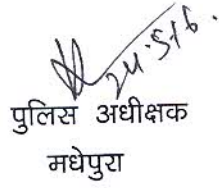 24.5.16.
पुलिस अधीक्षक
मधेपुरा